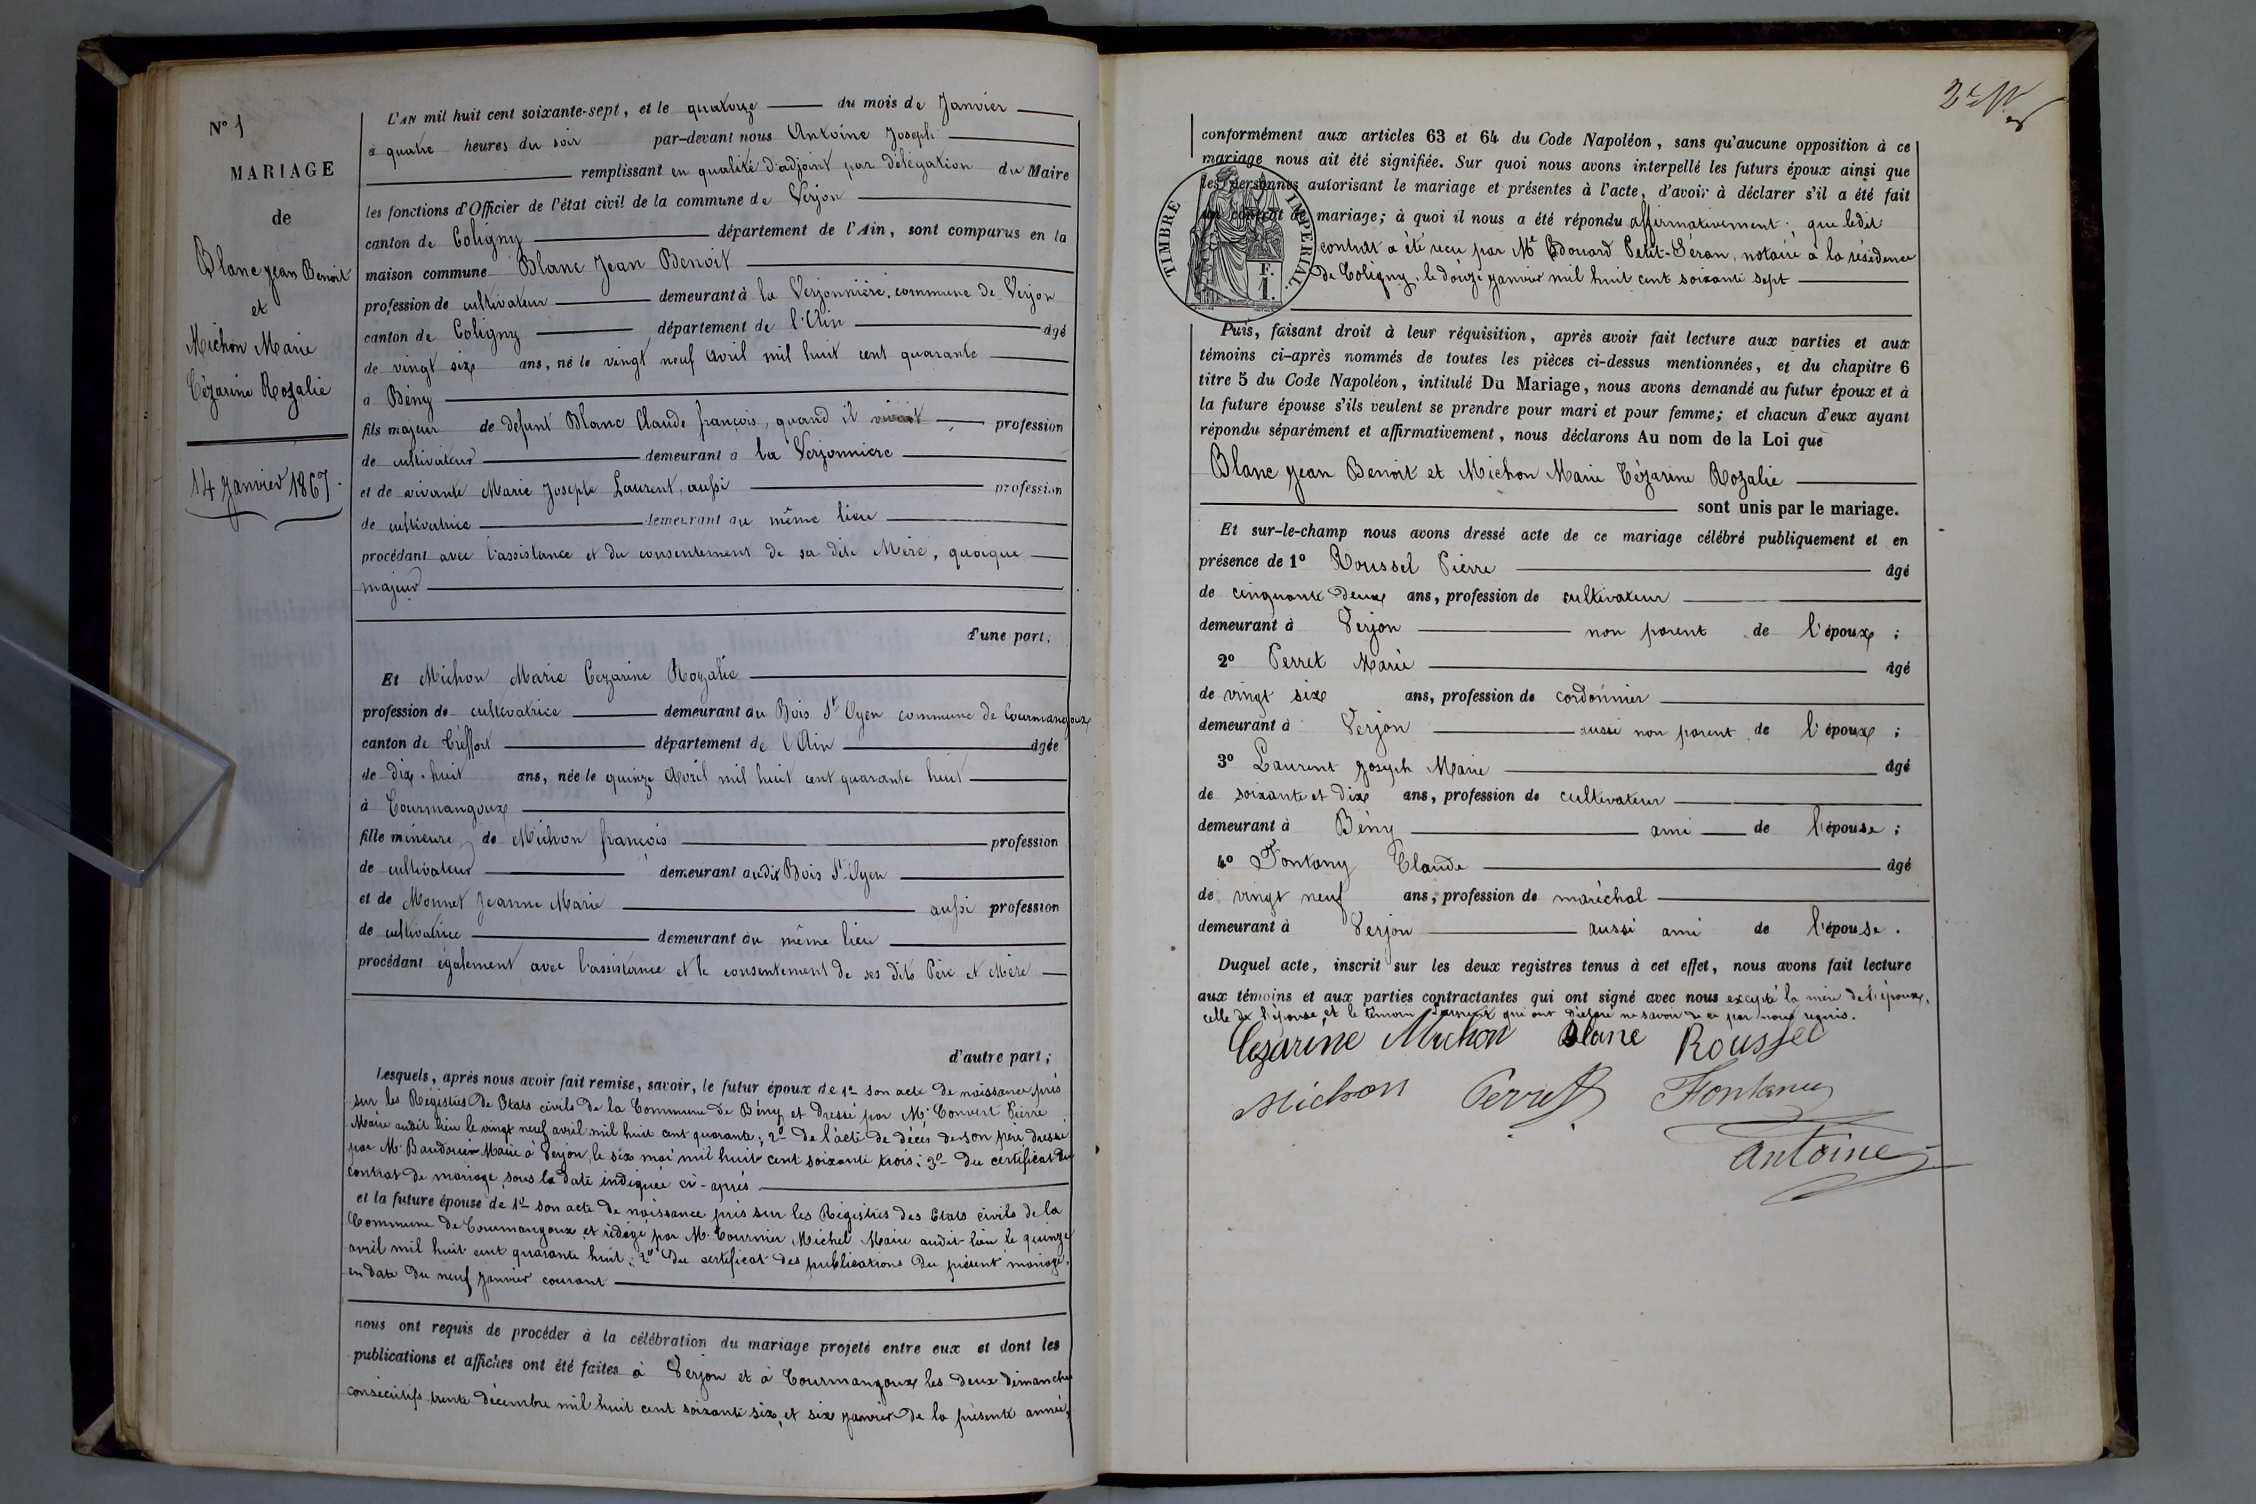 N° 1
MARIAGE
de
Blanc Jean Benoit
et
Michon Marie
Cézarine Rozalie
14 Janvier 1867.
L'AN mil huit cent soixante-sept, et le quatorze du mois de Janvier
à quatre heures du soir par-devant nous Antoine Joseph
remplissant en qualité d'adjoint par délégation du Maire
les fonctions d'Officier de l'état civil de la commune de Verjon
canton de Coligny département de l'Ain, sont comparus en la
maison commune Blanc Jean Benoit
profession de cultivateur demeurant à la Verjonnière, commune de Verjon
canton de Coligny département de l'Ain âgé
de vingt six ans, né le vingt neuf Avril mil huit cent quarante
à Bény
fils majeur de defunt Blanc Claude françois, quand il vivait profession
de cultivateur demeurant à la Verjonnière
et de vivante Marie Josephe Laurent, aussi profession
de cultivatrice demeurant au même lieu
procédant avec l'assistance et du consentement de sa dite Mère, quoique
majeur
d'une part;
Et Michon Marie Cezarine Rozalie
profession de cultivatrice demeurant au Bois St Oyen commune de Courmangoux
canton de Treffort département de l'Ain âgée
de dix-huit ans, née le quinze Avril mil huit cent quarante huit
à Courmangoux
fille mineure de Michon françois profession
de cultivateur demeurant audit Bois St Oyen
et de Monnet Jeanne Marie aussi profession
de cultivatrice demeurant au même lieu
procédant également avec l'assistance et le consentement de ses dits Père et Mère
d'autre part;
Lesquels, après nous avoir fait remise, savoir, le futur époux de 1° son acte de naissance pris
sur les Régistres de Etats civils de la Commune de Bény et dressé par Mr Convert Pierre
Maire audit lieu le vingt neuf avril mil huit cent quarante; 2° de l'acte de décès de son père dressé
par Mr Baudouin Maire à Verjon, le six mai mil huit cent soixante trois; 3° du certificat du
contrat de mariage sous la date indiquée ci-après
et la future épouse de 1° son acte de naissance pris sur les Régistres des Etats civils de la
Commune de Courmangoux et rédigé par M. Tournier Michel Maire audit lieu le quinze
avril mil huit cent quarante huit; 2° du certificat des publications du présent mariage,
en date du neuf janvier courant
nous ont requis de procéder à la célébration du mariage projeté entre eux et dont les
publications et affiches ont été faites à Verjon et à Courmangoux les deux dimanches
consécutifs trente décembre mil huit cent soixante six, et six janvier de la présente année,
conformément aux articles 63 et 64 du Code Napoléon, sans qu'aucune opposition à ce
mariage nous ait été signifiée. Sur quoi nous avons interpellé les futurs époux ainsi que
les personnes autorisant le mariage et présentes à l'acte, d'avoir à déclarer s'il a été fait
un contrat de mariage; à quoi il nous a été répondu affirmativement; que ledit
contrat a été reçu par Me Edouard Petit-Séran, notaire à la résidence
de Coligny, le douze janvier mil huit cent soixante sept
TIMBRE IMPERIAL.
F.
1.
Puis, faisant droit à leur réquisition, après avoir fait lecture aux parties et aux
témoins ci-après nommés de toutes les pièces ci-dessus mentionnées, et du chapitre 6
titre 5 du Code Napoléon, intitulé Du Mariage, nous avons demandé au futur époux et à
la future épouse s'ils veulent se prendre pour mari et pour femme; et chacun d'eux ayant
répondu séparément et affirmativement, nous déclarons Au nom de la Loi que
Blanc Jean Benoit et Michon Marie Cézarine Rozalie
sont unis par le mariage.
Et sur-le-champ nous avons dressé acte de ce mariage célébré publiquement et en
présence de 1° Roussel Pierre âgé
de cinquante deux ans, profession de cultivateur
demeurant à Verjon non parent de l'époux;
2° Perret Marie âgé
de vingt six ans, profession de cordonnier
demeurant à Verjon aussi non parent de l'époux;
3° Laurent Joseph Marie âgé
de soixante et dix ans, profession de cultivateur
demeurant à Bény ami de l'épouse;
4° Fontany Claude âgé
de vingt neuf ans, profession de maréchal
demeurant à Verjon aussi ami de l'épouse.
Duquel acte, inscrit sur les deux registres tenus à cet effet, nous avons fait lecture
aux témoins et aux parties contractantes qui ont signé avec nous excepté la mère de l'époux,
celle de l'épouse et le témoin Laurent qui ont déclaré ne savoir de ce par nous requis.
Cezarine Michon Blanc Roussel
Michon Perret Fontany
Antoine